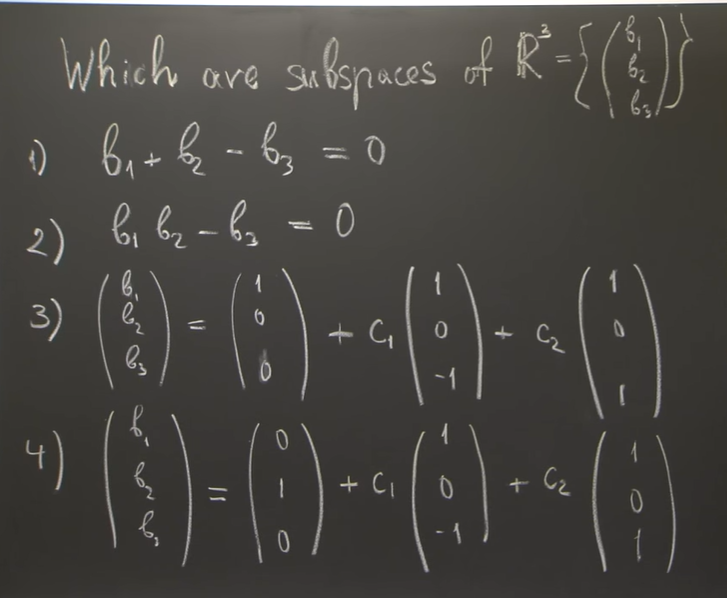 Which are subspaces of ℝ³ = {(b₁ b₂ b₃)}
1) b₁ + b₂ - b₃ = 0
2) b₁ b₂ - b₃ = 0
3) (b₁ b₂ b₃) = (1 0 0) + C₁ (1 0 -1) + C₂ (1 0 1)
4) (b₁ b₂ b₃) = (0 1 0) + C₁ (1 0 -1) + C₂ (1 0 1)